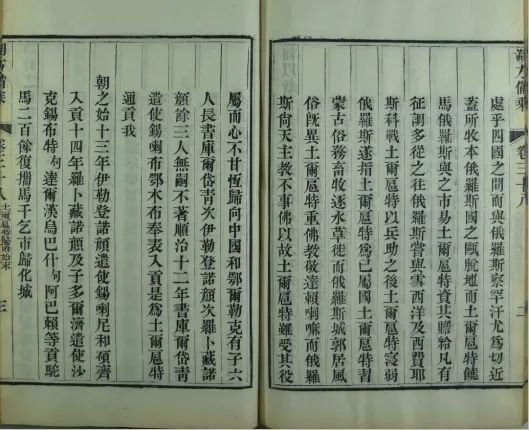 朔方備乘 卷三十八
處乎四國之間而與俄羅斯察罕汗尤爲切近
蓋所牧本俄羅斯國之甌脫地而土爾扈特
馬俄羅斯與之市易土爾扈特資其贈給凡有
征調多從之往俄羅斯嘗與雪西洋及西費耶
斯科戰土爾扈特以兵助之後土爾扈特寖弱
俄羅斯遂指土爾扈特爲己屬國土爾扈特習
蒙古俗務畜牧逐水草徙而俄羅斯城郭居風
俗旣異土爾扈特重佛教敬達賴喇嘛而俄羅
斯尚天主教不事佛以故土爾扈特雖受其役
屬而心不甘恆歸向中國和鄂爾勒克有子六
人長書庫爾岱青次伊勒登諾顏次羅卜藏諾
顏餘三人無嗣不著順治十二年書庫爾岱青
遣使錫喇布鄂木布奉表入貢是爲土爾扈特
通貢我
朝之始十三年伊勒登諾顏遣使錫喇尼和碩齊
入貢十四年羅卜藏諾顏及子多爾濟遣使沙
克錫布特達爾漢烏巴什阿巴賴等貢駝
馬二百餘復攜馬千乞市歸化城
朔方備乘 卷三十八 土爾扈特歸附始末 三